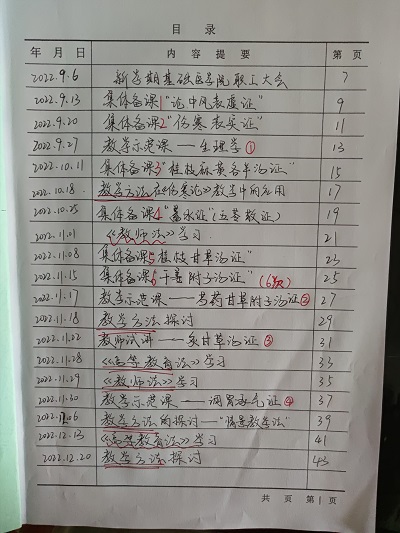 目 录
年 月 日 内 容 提 要 第 页
2022.9.6 新学期基础医学院职工大会 7
2022.9.13 集体备课1"论中风表虚证" 9
2022.9.20 集体备课2"伤寒表实证" 11
2022.9.27 教学示范课——生理学① 13
2022.10.11 集体备课3"桂枝麻黄各半汤证" 15
2022.10.18. 教学方法在《伤寒论》教学中的应用 17
2022.10.25 集体备课4"蓄水证"(五苓散证) 19
2022.11.01 《教师法》学习 21
2022.11.08 集体备课5桂枝甘草汤证" 23
2022.11.15 集体备课6干姜附子汤证" (6次) 25
2022.11.17 教学示范课——芍药甘草附子汤证② 27
2022.11.18 教学方法探讨 29
2022.11.22 教师试讲——炙甘草汤证③ 31
2022.11.28 《高等教育法》学习 33
2022.11.29 《教师法》学习 35
2022.11.30 教学示范课——调胃承气证④ 37
2022.11.06 教学方法的探讨—"情景教学法" 39
2022.12.13 《高等教育法》学习 41
2022.12.20 教学方法探讨 43
共 页 第1页